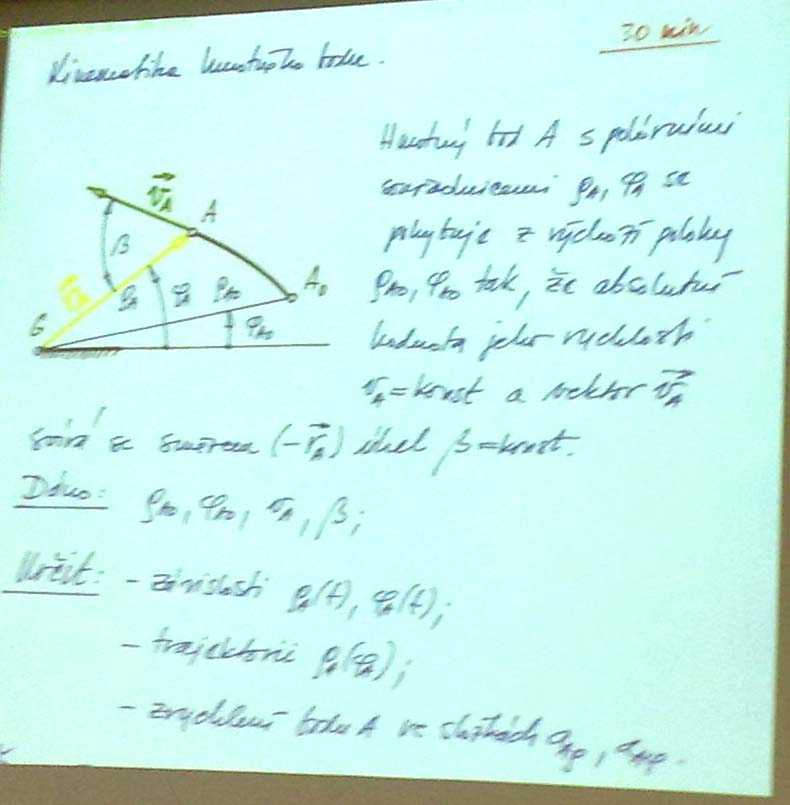 30 min
Kinematika hmotného bodu.
Hmotný bod A s polárními
souřadnicemi ρA, φA se
pohybuje z výchozí polohy
ρA0, φA0 tak, že absolutní
hodnota jeho rychlosti
vA=konst a vektor v⃗A
svírá se směrem (-r⃗A) úhel β=konst.
v⃗A
A
β
r⃗A
ρA
φA
ρA0
A0
φA0
Dáno: ρA0, φA0, vA, β;
Určit: - závislosti ρA(t), φA(t);
- trajektorii ρA(φA);
- zrychlení bodu A ve složkách aAρ, aAφ.